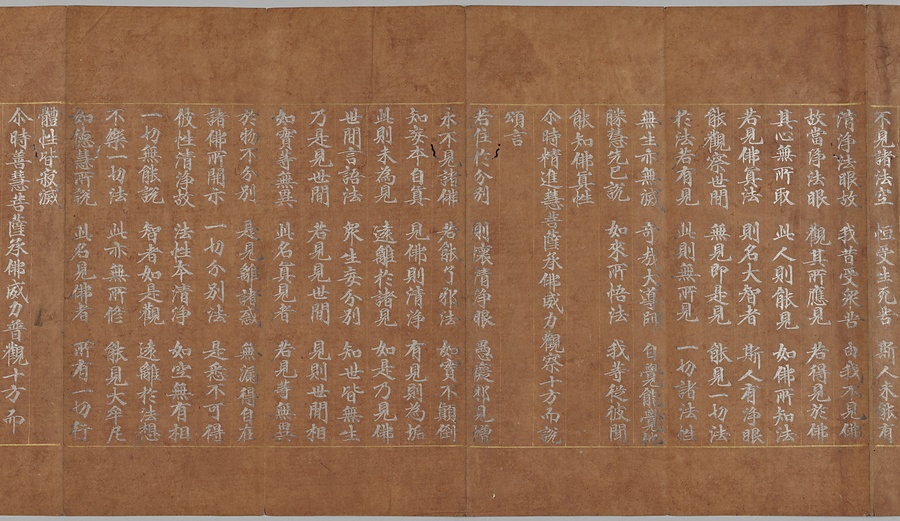 不見諸法空 恒受生死苦 斯人未能有
清淨法眼故 我昔受衆苦 由我不見佛
故當淨法眼 觀其所應見 若得見於佛
其心無所取 此人則能見 如佛所知法
若見佛真法 則名大智者 斯人有淨眼
能觀察世間 無見即是見 能見一切法
於法若有見 此則無所見 一切諸法性
無生亦無滅 奇哉大導師 自覺能覺他
勝慧先已說 如來所悟法 我等從彼聞
能知佛真性
尒時精進慧菩薩承佛威力觀察十方而說
頌言
若住於分別 則壞清淨眼 愚癡邪見增
永不見諸佛 若能了邪法 如實不顛倒
知妄本自真 見佛則清淨 有見則為垢
此則未為見 遠離於諸見 如是乃見佛
世間言語法 衆生妄分別 知世皆無生
乃是見世間 若見見世間 見則世間相
如實等無異 此名真見者 若見等無異
於物不分別 是見離諸惑 無漏得自在
諸佛所開示 一切分別法 是悉不可得
彼性清淨故 法性本清淨 如空無有相
一切無能說 智者如是觀 遠離於法想
不樂一切法 此亦無所修 能見大牟尼
如德慧所說 此名見佛者 所有一切行
體性皆寂滅
尒時善慧菩薩承佛威力普觀十方而